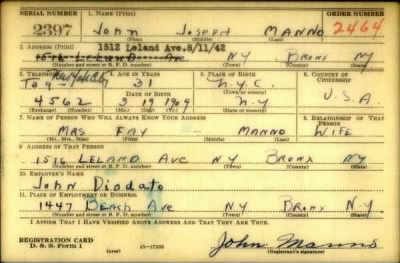 SERIAL NUMBER 1. NAME (Print) ORDER NUMBER
2397 John Joseph Manno 2464
(First) (Middle) (Last)
2. ADDRESS (Print) 1512 Leland Ave. 8/11/42
1516 Leland Ave NY Bronx NY
(Number and street or R. F. D. number) (Town) (County) (State)
3. TELEPHONE 4. AGE IN YEARS 5. PLACE OF BIRTH 6. COUNTRY OF CITIZENSHIP
31 N.Y.C.
DATE OF BIRTH (Town or county)
4562 3 19 1909 N.Y U.S.A.
(Mo.) (Day) (Yr.) (State or country)
7. NAME OF PERSON WHO WILL ALWAYS KNOW YOUR ADDRESS 8. RELATIONSHIP OF THAT PERSON
Mrs Fay Manno Wife
(Mr., Mrs., Miss) (First) (Middle) (Last)
9. ADDRESS OF THAT PERSON
1516 Leland Ave NY Bronx NY
(Number and street or R. F. D. number) (Town) (County) (State)
10. EMPLOYER'S NAME
John Diodato
11. PLACE OF EMPLOYMENT OR BUSINESS
1447 Beach Ave NY Bronx N.Y
(Number and street or R. F. D. number) (Town) (County) (State)
I AFFIRM THAT I HAVE VERIFIED ABOVE ANSWERS AND THAT THEY ARE TRUE.
REGISTRATION CARD
D. S. S. Form 1 (over) 16-17105 John Manno
(Registrant's signature)